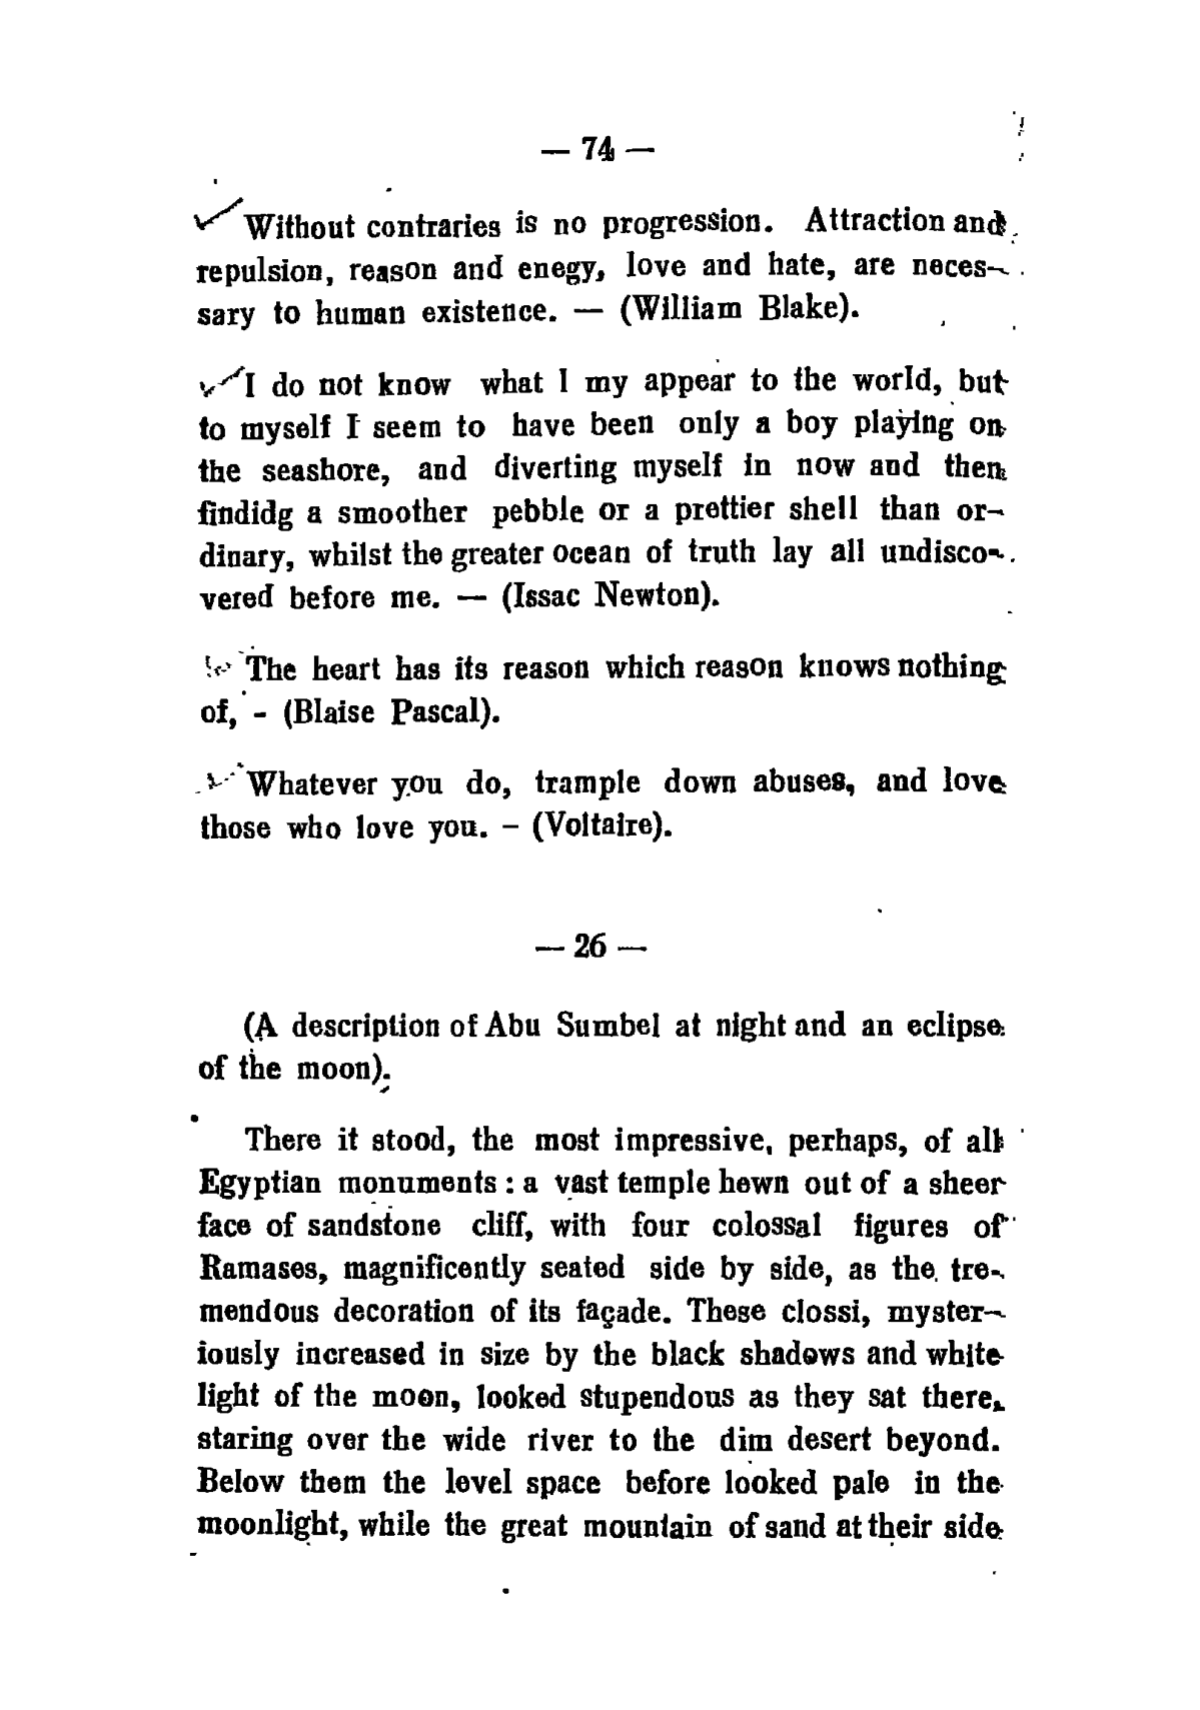 — 74 —
Without contraries is no progression. Attraction and
repulsion, reason and enegy, love and hate, are neces-
sary to human existence. — (William Blake).
I do not know what I my appear to the world, but
to myself I seem to have been only a boy playing on
the seashore, and diverting myself in now and then
findidg a smoother pebble or a prettier shell than or-
dinary, whilst the greater ocean of truth lay all undisco-
vered before me. — (Issac Newton).
The heart has its reason which reason knows nothing
of, - (Blaise Pascal).
Whatever you do, trample down abuses, and love
those who love you. - (Voltaire).
— 26 —
(A description of Abu Sumbel at night and an eclipse
of the moon).
There it stood, the most impressive, perhaps, of all
Egyptian monuments : a vast temple hewn out of a sheer
face of sandstone cliff, with four colossal figures of
Ramases, magnificently seated side by side, as the tre-
mendous decoration of its façade. These clossi, myster-
iously increased in size by the black shadows and white
light of the moon, looked stupendous as they sat there,
staring over the wide river to the dim desert beyond.
Below them the level space before looked pale in the
moonlight, while the great mountain of sand at their side